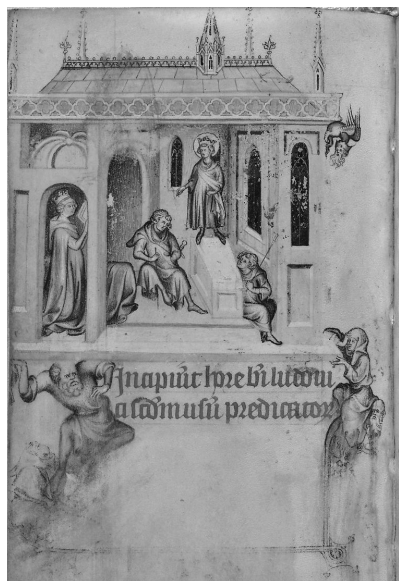 Incipiūt hore bī ludoui
ci scdm̄ usū predicator